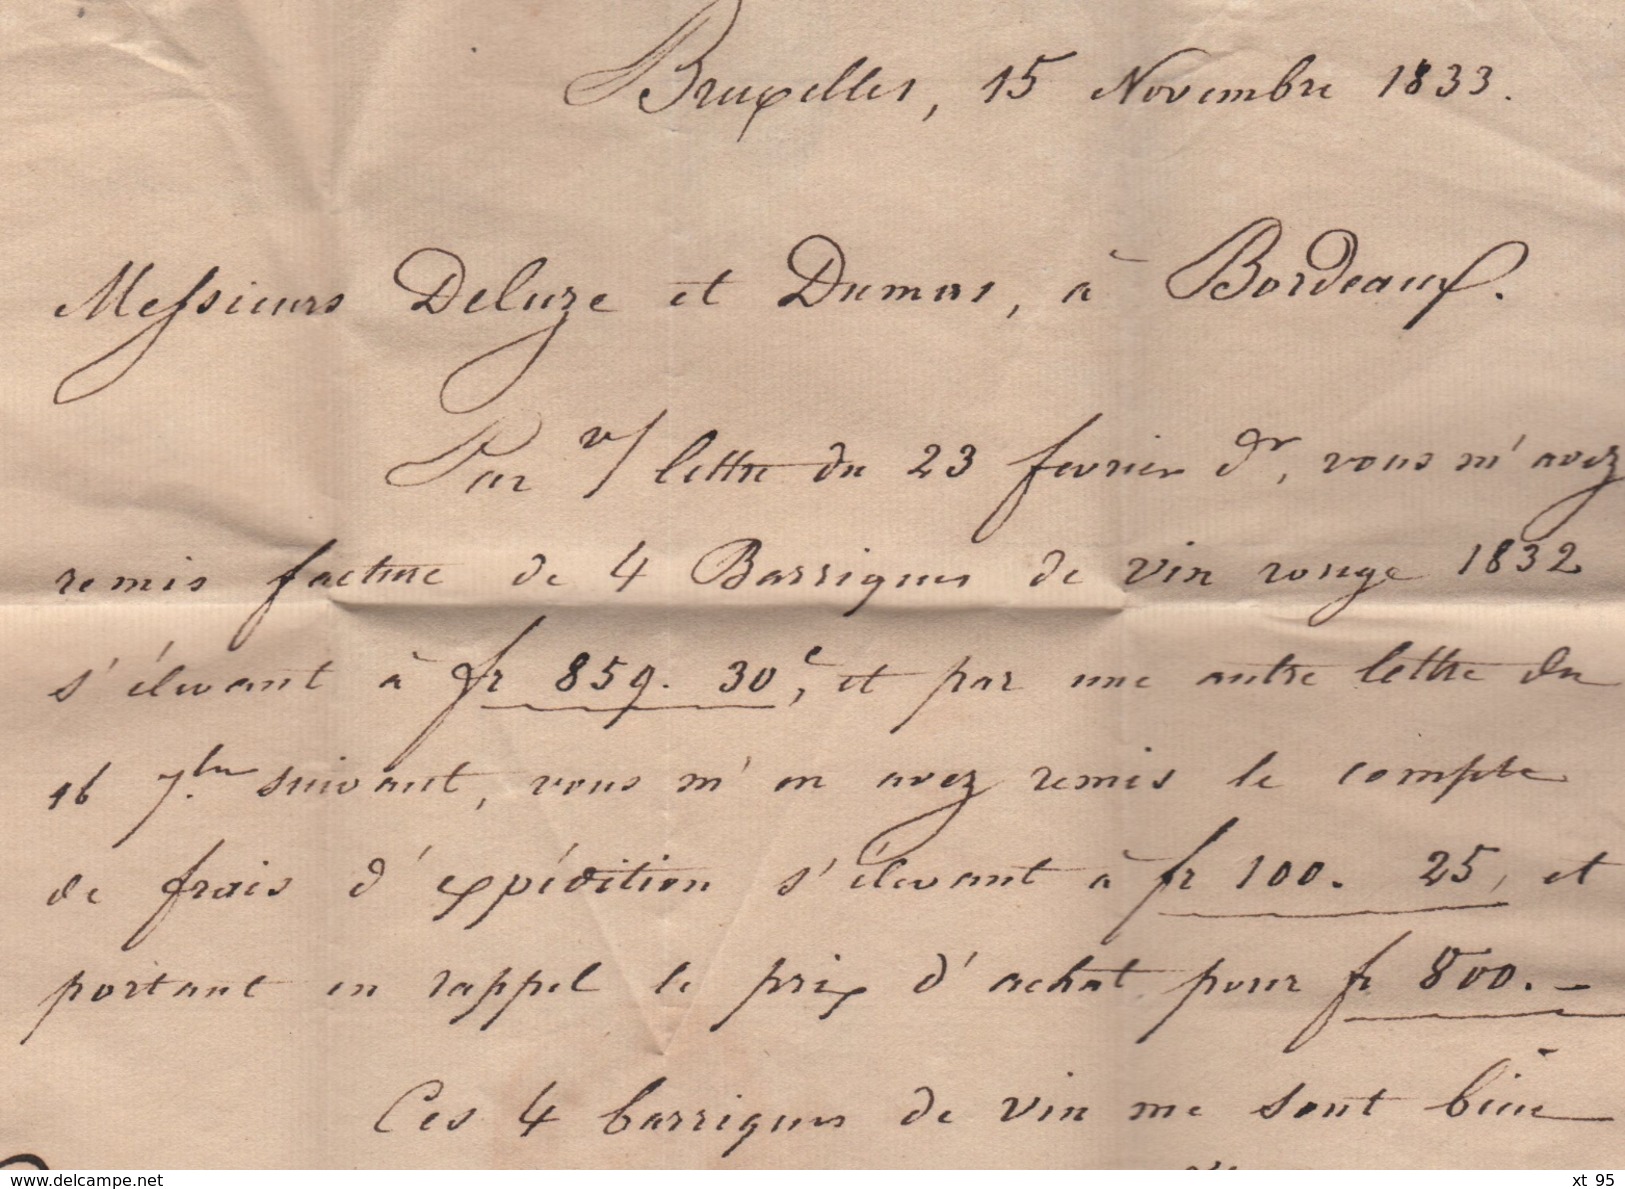 Bruxelles, 15 Novembre 1833.
Messieurs Deluze et Dumas, à Bordeaux.
Par v/ lettre du 23 fevrier dr, vous m'avez
remis facture de 4 Barriques de vin rouge 1832
s'élevant à fr 859. 30c, et par une autre lettre du
16 7.bre suivant, vous m'en avez remis le compte
de frais d'expédition s'élevant à fr 100. 25, et
portant en rappel le prix d'achat pour fr 800. -
Ces 4 barriques de vin me sont bien
www.delcampe.net
xt 95